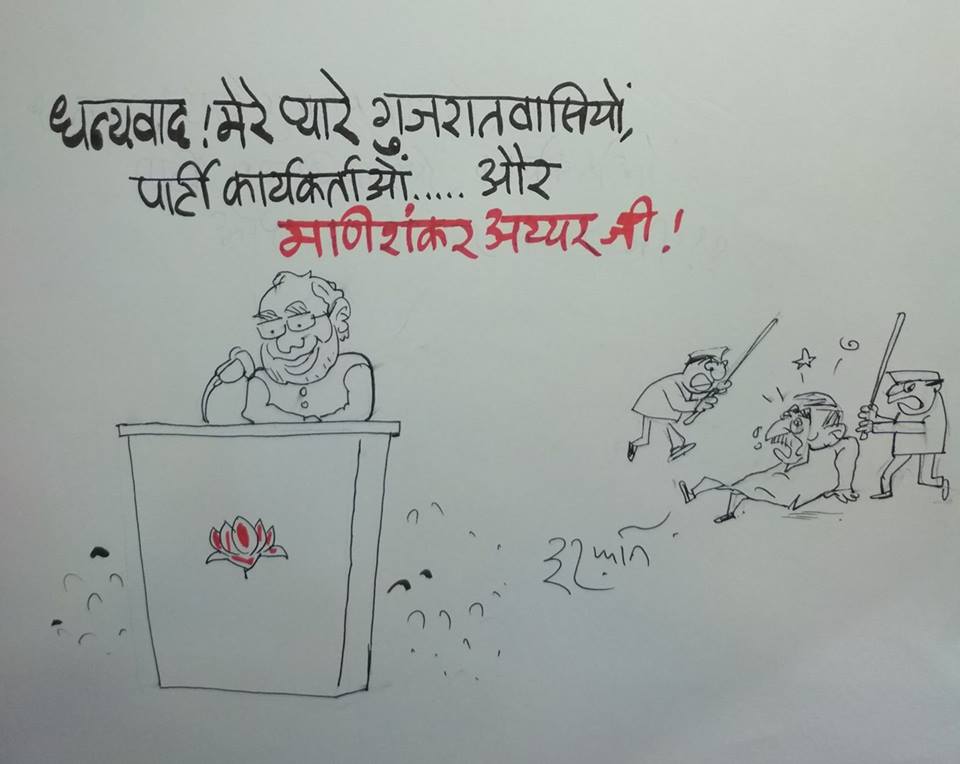 धन्यवाद! मेरे प्यारे गुजरातवासियों,
पार्टी कार्यकर्ताओं..... और
मणिशंकर अय्यर जी!
इरफ़ान